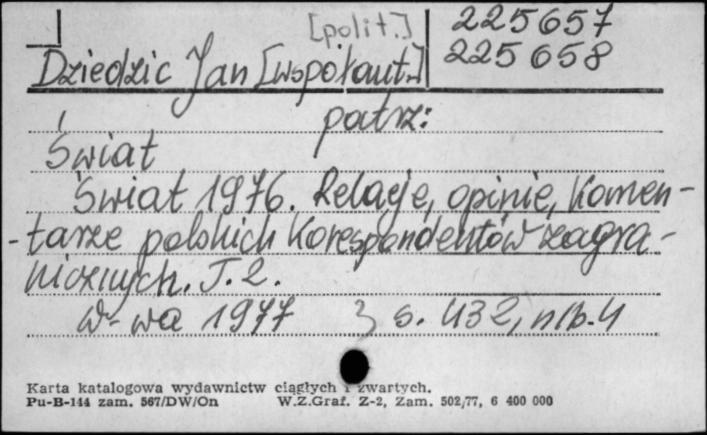 [polit.] 225657
Dziedzic Jan [współaut.] 225658
patrz:
Świat
Świat 1976. Relacje, opinie, komen-
-tarze polskich korespondentów zagra-
nicznych. T. 2.
W-wa 1977 s. 432, nlb. 4
Karta katalogowa wydawnictw ciągłych i zwartych.
Pu-B-144 zam. 567/DW/On W.Z.Graf. Z-2, Zam. 502/77, 6 400 000